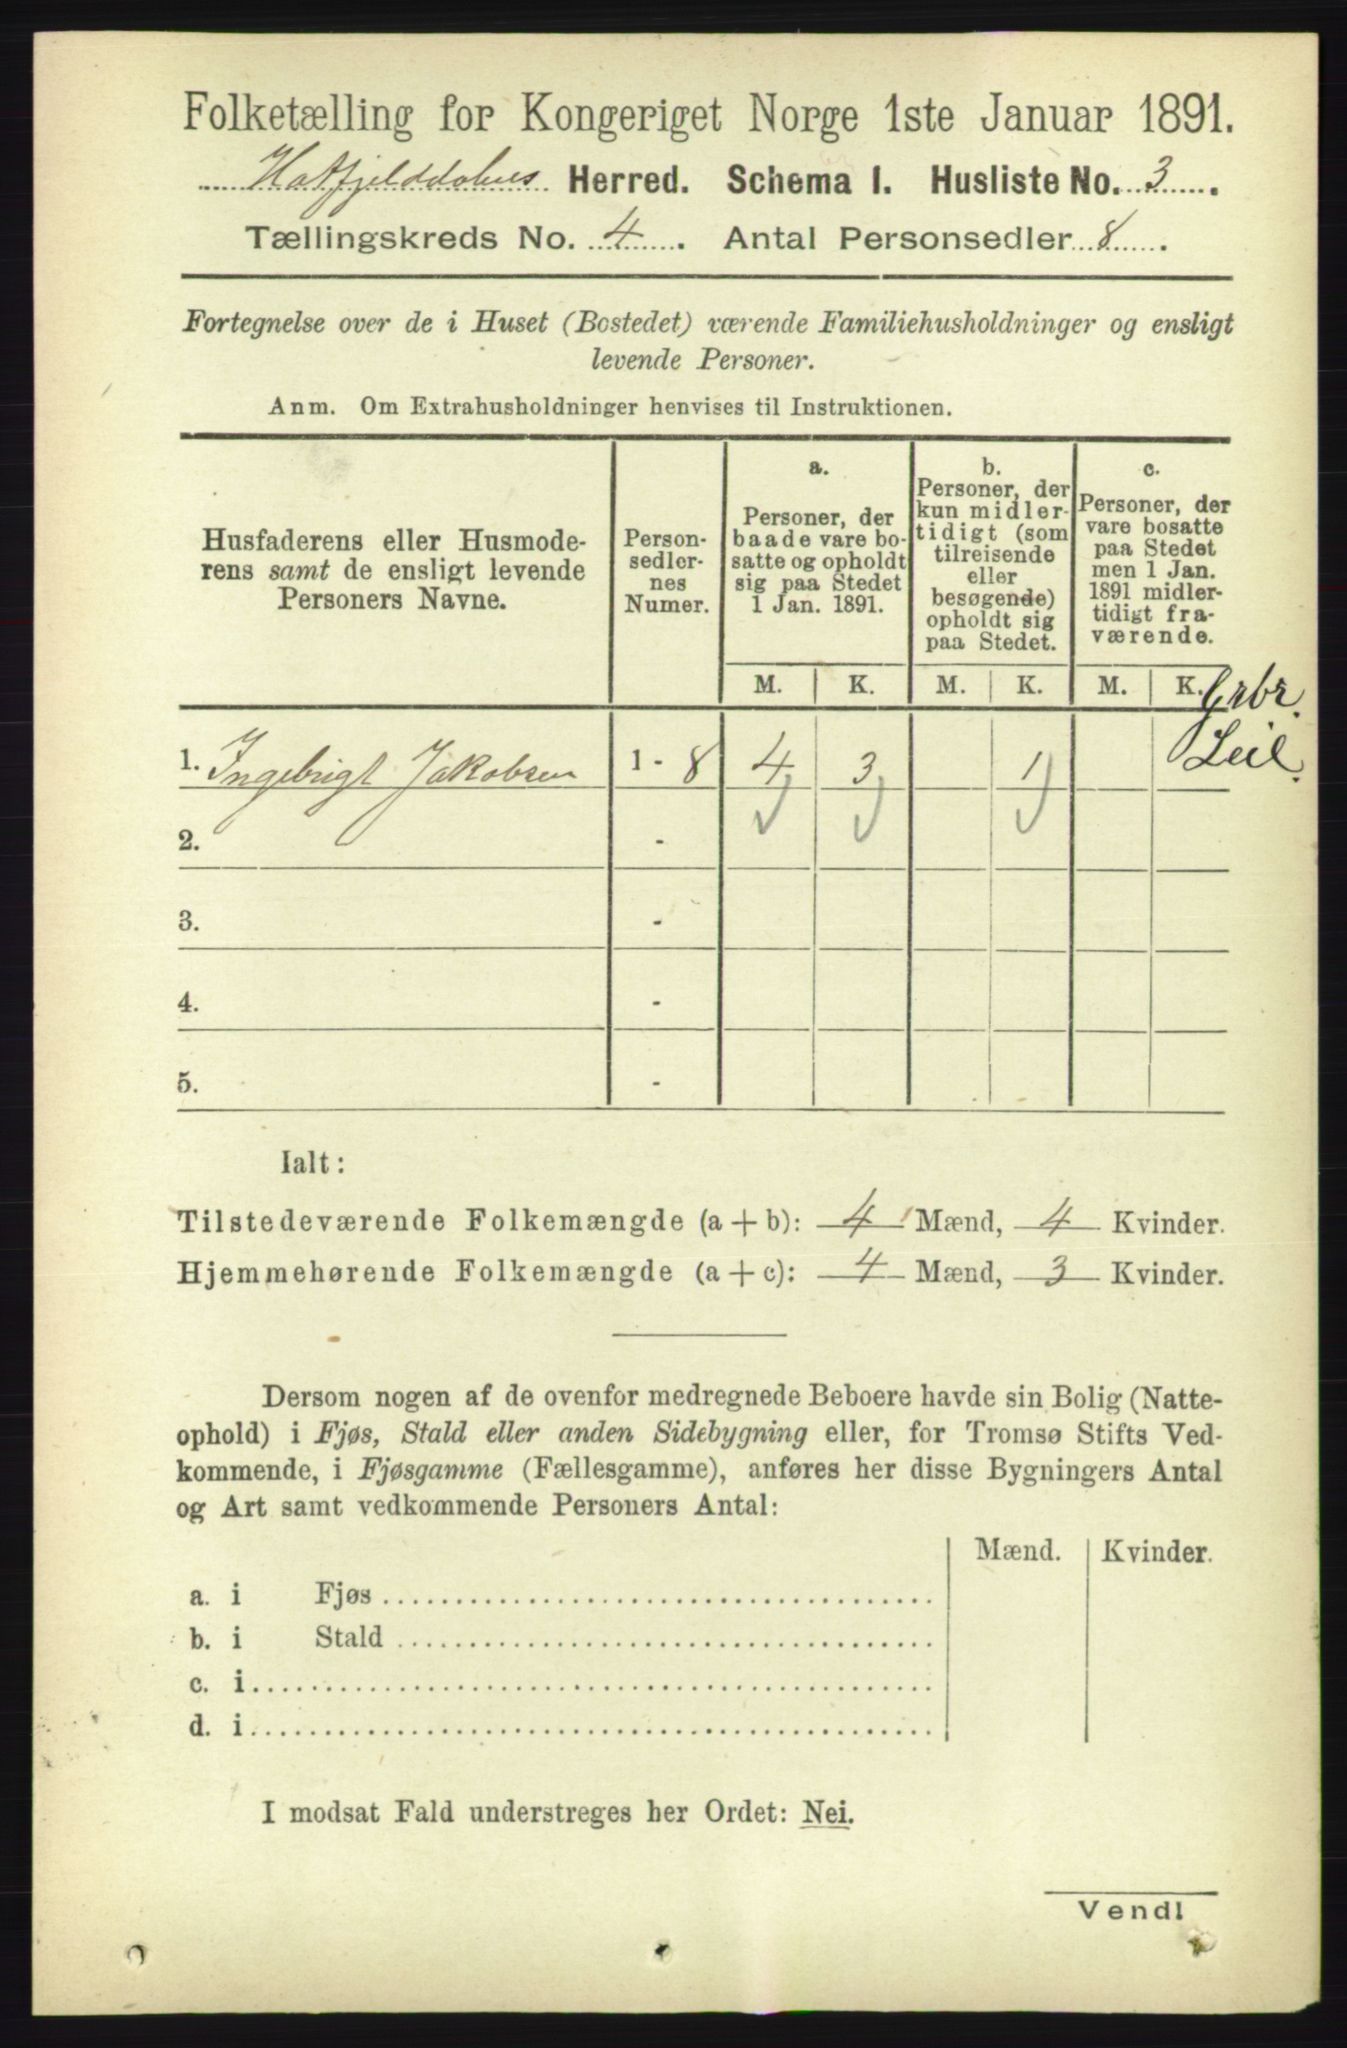 Folketælling for Kongeriget Norge 1ste Januar 1891.
Hatfjelddalens Herred. Schema I. Husliste No. 3.
Tællingskreds No. 4. Antal Personsedler 8.
Fortegnelse over de i Huset (Bostedet) værende Familiehusholdninger og ensligt
levende Personer.
Anm. Om Extrahusholdninger henvises til Instruktionen.
Husfaderens eller Husmode-
rens samt de ensligt levende
Personers Navne.
Person-
sedler-
nes
Numer.
a.
Personer, der
baade vare bo-
satte og opholdt
sig paa Stedet
1 Jan. 1891.
b.
Personer, der
kun midler-
tidigt (som
tilreisende
eller
besøgende)
opholdt sig
paa Stedet.
c.
Personer, der
vare bosatte
paa Stedet
men 1 Jan.
1891 midler-
tidigt fra-
værende.
M. K. M. K. M. K.
Grbr.
Leil.
1. Ingebrigt Jakobsen 1 - 8 4 3 1
2. -
3. -
4. -
5. -
Ialt:
Tilstedeværende Folkemængde (a + b): 4 Mænd, 4 Kvinder.
Hjemmehørende Folkemængde (a + c): 4 Mænd, 3 Kvinder.
Dersom nogen af de ovenfor medregnede Beboere havde sin Bolig (Natte-
ophold) i Fjøs, Stald eller anden Sidebygning eller, for Tromsø Stifts Ved-
kommende, i Fjøsgamme (Fællesgamme), anføres her disse Bygningers Antal
og Art samt vedkommende Personers Antal:
Mænd. Kvinder.
a. i Fjøs
b. i Stald
c. i
d. i
I modsat Fald understreges her Ordet: Nei.
Vend!